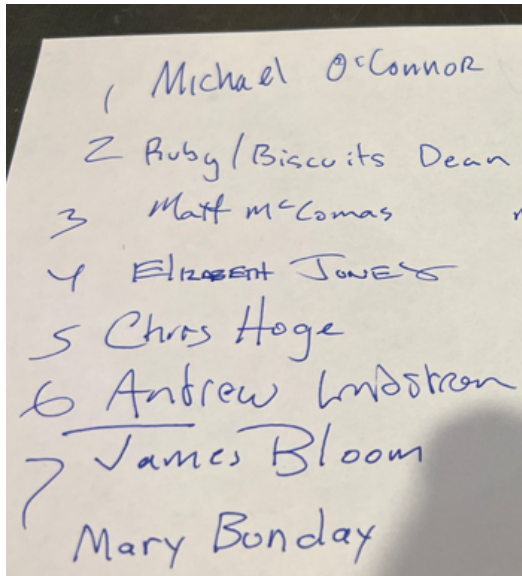 1 Michael O'Connor
2 Ruby/Biscuits Dean
3 Matt McComas
4 Elizabeth Jones
5 Chris Hoge
6 Andrew Lindstrom
7 James Bloom
Mary Bonday